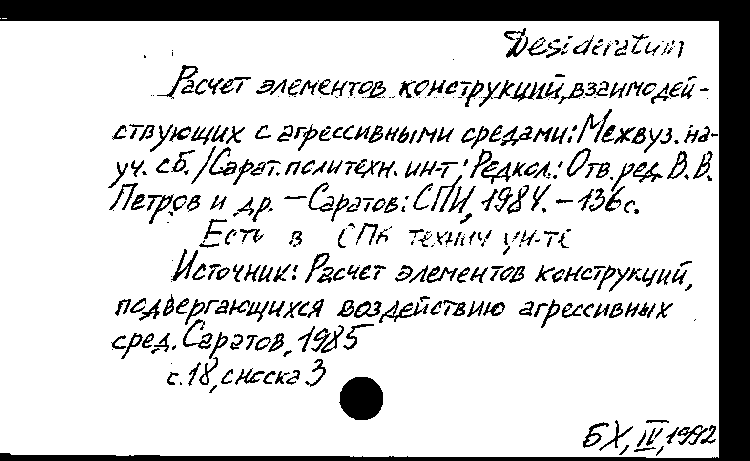 Desideratum
Расчет элементов конструкций, взаимодей-
ствующих с агрессивными средами: Межвуз. на-
уч. сб. / Сарат. политехн. ин-т; Редкол.: Отв. ред. В. В.
Петров и др. — Саратов: СПИ, 1984. — 136 с.
Есть в СПб технич ун-те
Источник: Расчет элементов конструкций,
подвергающихся воздействию агрессивных
сред. Саратов, 1985
с. 18, сноска 3
БХ, IV, 1992